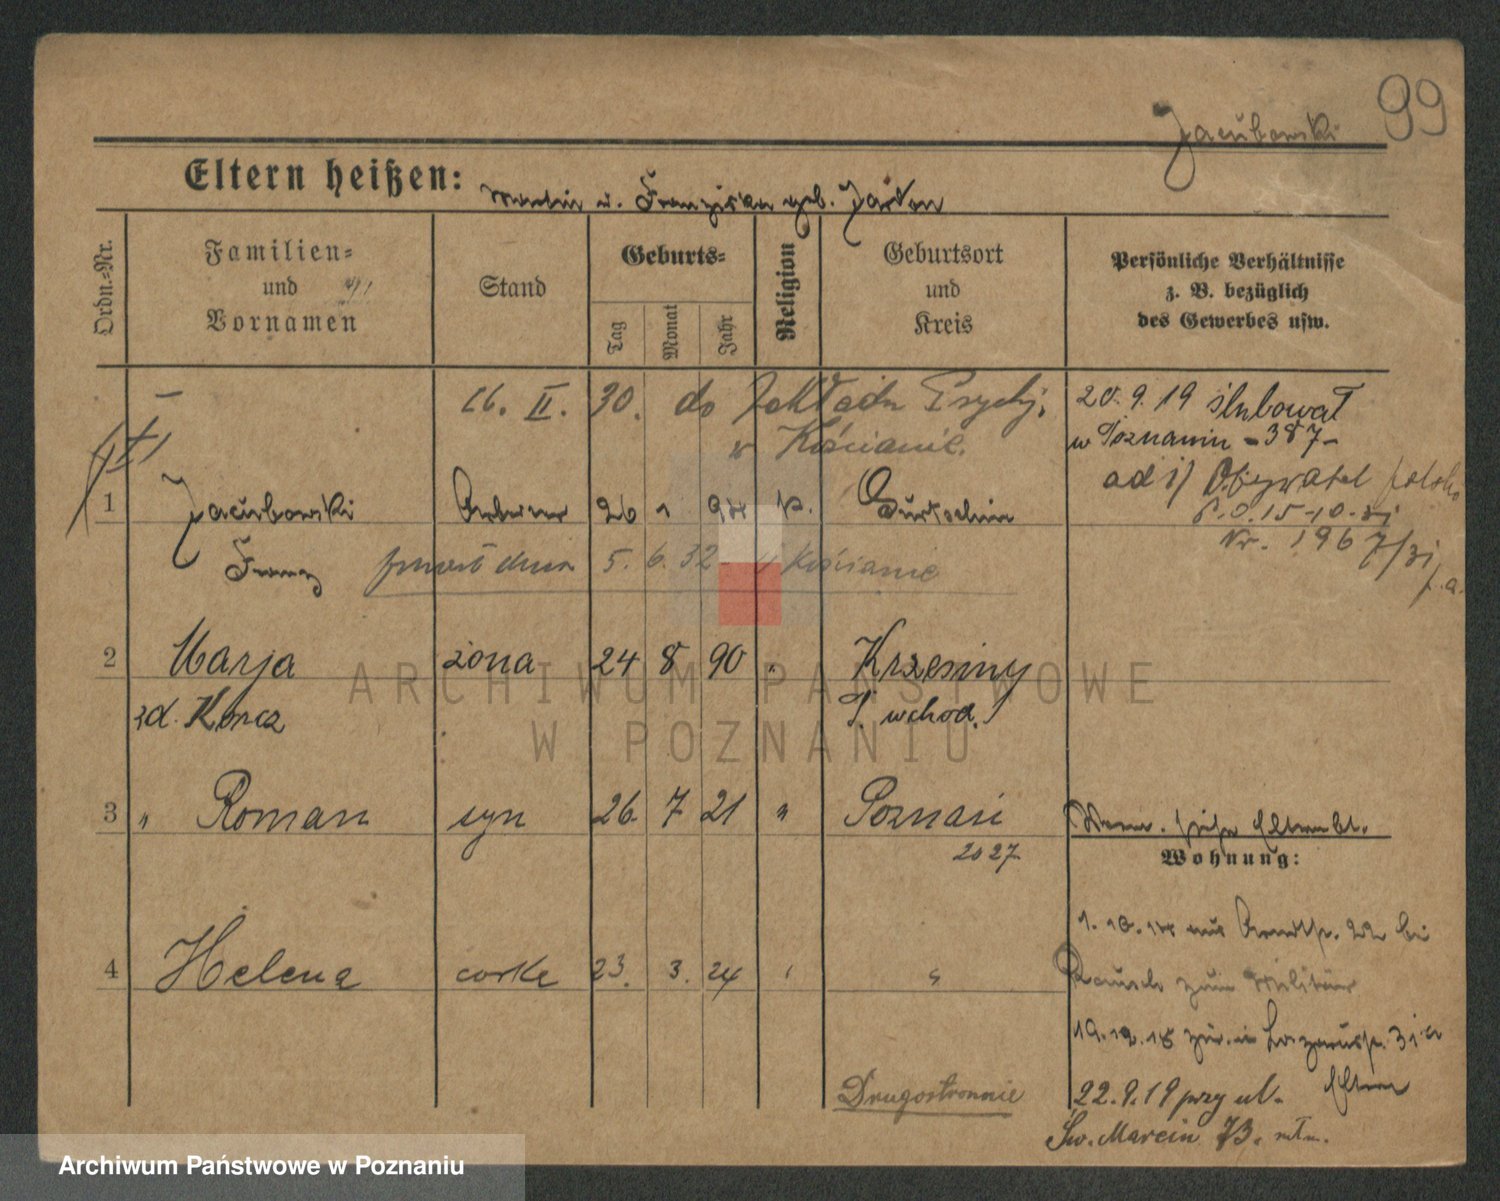 99
Jacubowski
Eltern heißen: Martin u. Franziska geb.
Ordn.-Nr.
Familien- und Vornamen
Stand
Geburts-
Tag
Monat
Jahr
Religion
Geburtsort und Kreis
Persönliche Verhältnisse z. B. bezüglich des Gewerbes usw.
16. II. 30. do Zakładu Psychj.
w Kościanie.
20.9.19 ślubował
w Poznaniu - 387-
ad 1) Obywatel polski
P.O. 15-10-31
Nr. 1967/31
1 Jacubowski Arbeiter 26 1 94 k. Gurtschin
Franz
powrócił dnia 5. 6. 32 z Kościanie
2 Marja żona 24 8 90 " Krzesiny
zd. Korcz P. wchod.
3 " Roman syn 26. 7 21 " Poznań
2027
Wohnung:
1. 10. 14 aus Arndtstr. 22 bei
Rausch zum Militär
4 Helena corke 23. 3. 24 " "
19.12.18 zur. in
Eltern
22.9.19 przy ul.
Św. Marcin 73. mtn.
Drugostronnie
ARCHIWUM PAŃSTWOWE
W POZNANIU
Archiwum Państwowe w Poznaniu